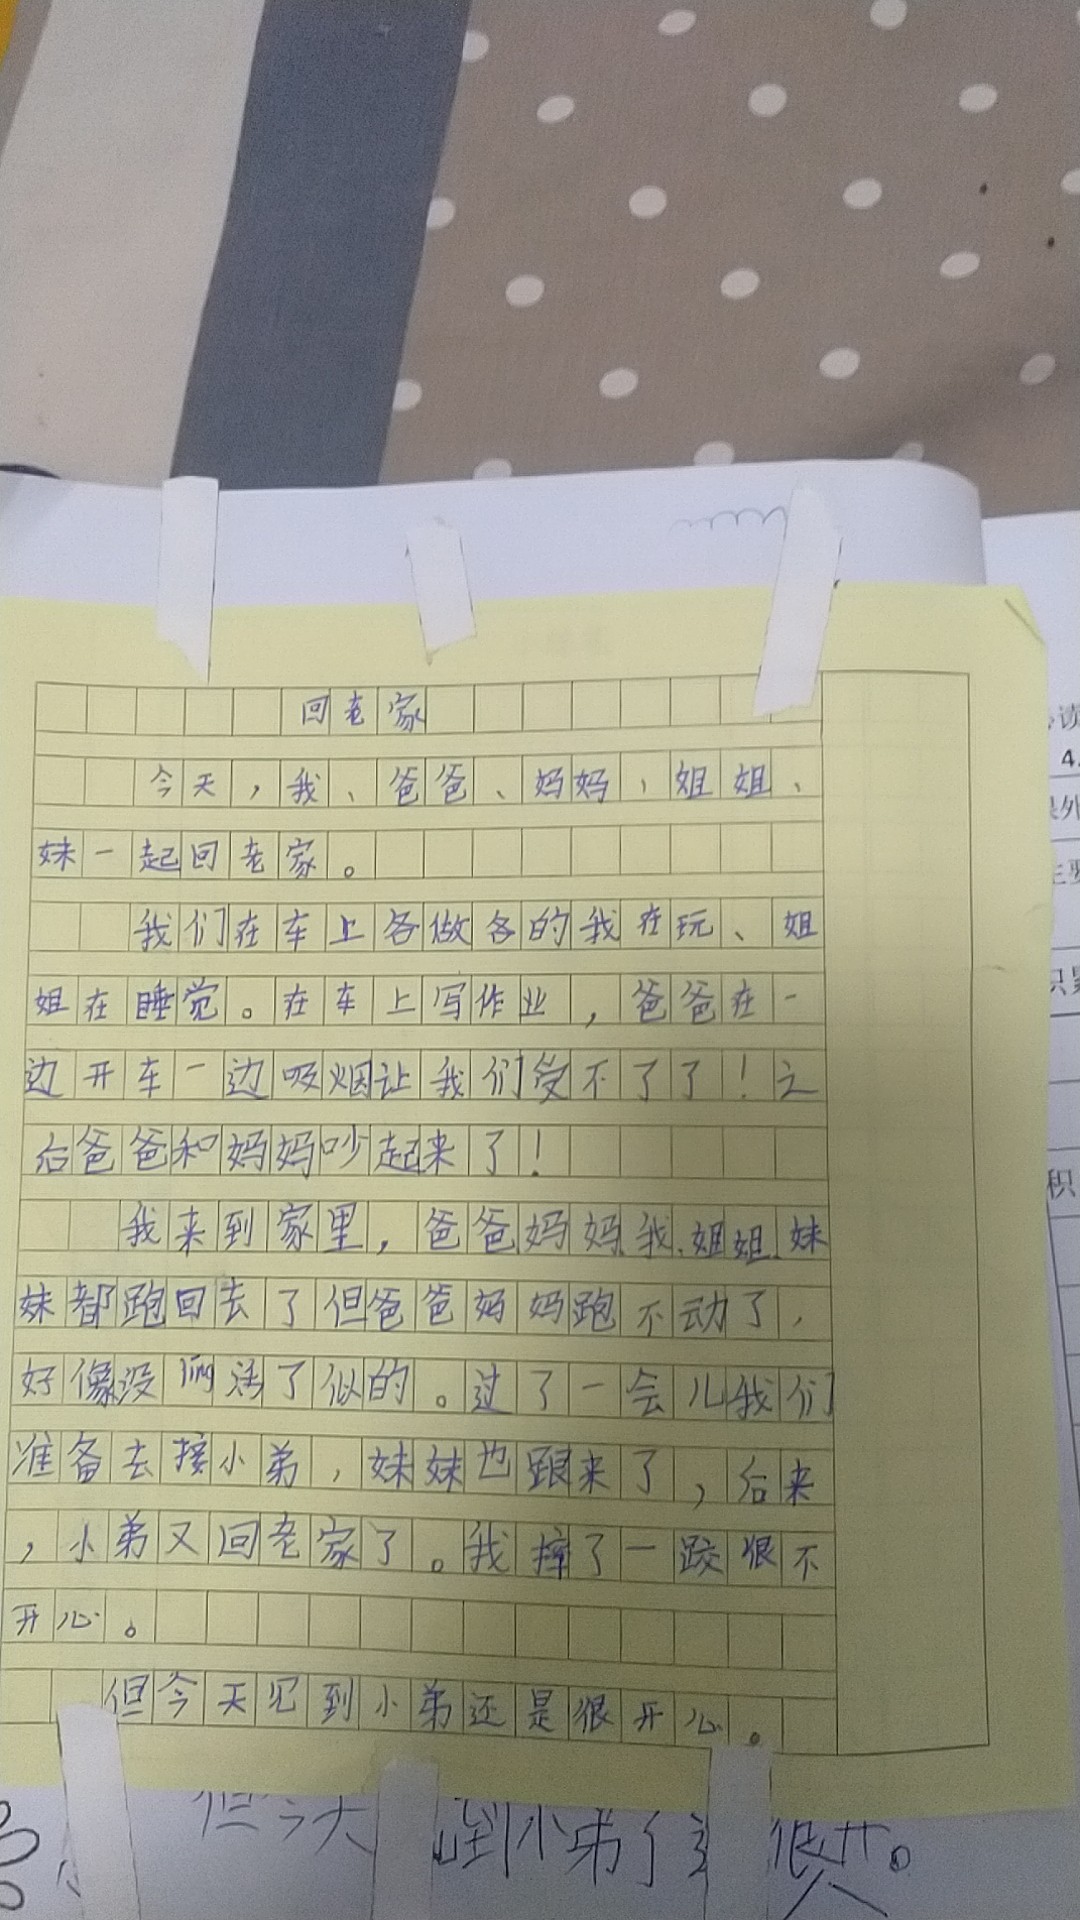 回老家
今天，我、爸爸、妈妈、姐姐、
妹一起回老家。
我们在车上各做各的我在玩、姐
姐在睡觉。在车上写作业，爸爸在一
边开车一边吸烟让我们受不了了！之
后爸爸和妈妈吵起来了！
我来到家里，爸爸妈妈我、姐姐、妹
妹都跑回去了但爸爸妈妈跑不动了，
好像没 活了似的。过了一会儿我们
准备去接小弟，妹妹也跟来了，后来
，小弟又回老家了。我摔了一跤很不
开心。
但今天见到小弟还是很开心。
但今天 到小弟了 很开。
读
4.
课外
主要
积